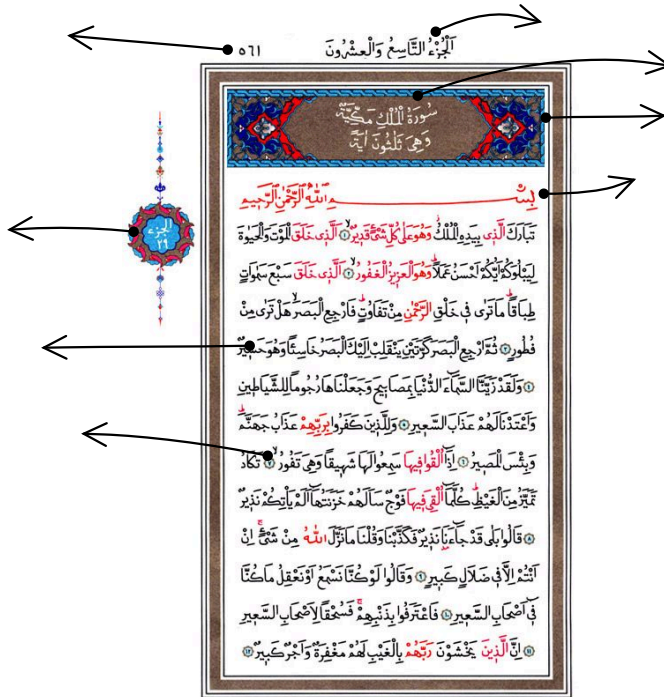 اَلْجُزْءُ التَّاسِعُ وَالْعِشْرُونَ
٥٦١
سُورَةُ الْمُلْكِ مَكِّيَّةٌ
وَهِيَ ثَلٰثُونَ اٰيَةً
الجزء
٢٩
بِسْمِ اللّٰهِ الرَّحْمٰنِ الرَّحِيمِ
تَبَارَكَ الَّذِى بِيَدِهِ الْمُلْكُ وَهُوَ عَلٰى كُلِّ شَىْءٍ قَدِيرٌ ١ اَلَّذِى خَلَقَ الْمَوْتَ وَالْحَيٰوةَ
لِيَبْلُوَكُمْ اَيُّكُمْ اَحْسَنُ عَمَلاً وَهُوَ الْعَزِيزُ الْغَفُورُ ٢ اَلَّذِى خَلَقَ سَبْعَ سَمٰوَاتٍ
طِبَاقاً مَا تَرٰى فِى خَلْقِ الرَّحْمٰنِ مِنْ تَفَاوُتٍ فَارْجِعِ الْبَصَرَ هَلْ تَرٰى مِنْ
فُطُورٍ ٣ ثُمَّ ارْجِعِ الْبَصَرَ كَرَّتَيْنِ يَنْقَلِبْ اِلَيْكَ الْبَصَرُ خَاسِئاً وَهُوَ حَسِيرٌ
٤ وَلَقَدْ زَيَّنَّا السَّمَاءَ الدُّنْيَا بِمَصَابِيحَ وَجَعَلْنَاهَا رُجُوماً لِلشَّيَاطِينِ
وَاَعْتَدْنَا لَهُمْ عَذَابَ السَّعِيرِ ٥ وَلِلَّذِينَ كَفَرُوا بِرَبِّهِمْ عَذَابُ جَهَنَّمَ
وَبِئْسَ الْمَصِيرُ ٦ اِذَا اُلْقُوا فِيهَا سَمِعُوا لَهَا شَهِيقاً وَهِىَ تَفُورُ ٧ تَكَادُ
تَمَيَّزُ مِنَ الْغَيْظِ كُلَّمَا اُلْقِىَ فِيهَا فَوْجٌ سَاَلَهُمْ خَزَنَتُهَا اَلَمْ يَأْتِكُمْ نَذِيرٌ
٨ قَالُوا بَلٰى قَدْ جَاءَنَا نَذِيرٌ فَكَذَّبْنَا وَقُلْنَا مَا نَزَّلَ اللّٰهُ مِنْ شَىْءٍ اِنْ
اَنْتُمْ اِلَّا فِى ضَلَالٍ كَبِيرٍ ٩ وَقَالُوا لَوْ كُنَّا نَسْمَعُ اَوْ نَعْقِلُ مَا كُنَّا
فِى اَصْحَابِ السَّعِيرِ ١٠ فَاعْتَرَفُوا بِذَنْبِهِمْ فَسُحْقاً لِاَصْحَابِ السَّعِيرِ
١١ اِنَّ الَّذِينَ يَخْشَوْنَ رَبَّهُمْ بِالْغَيْبِ لَهُمْ مَغْفِرَةٌ وَاَجْرٌ كَبِيرٌ ١٢